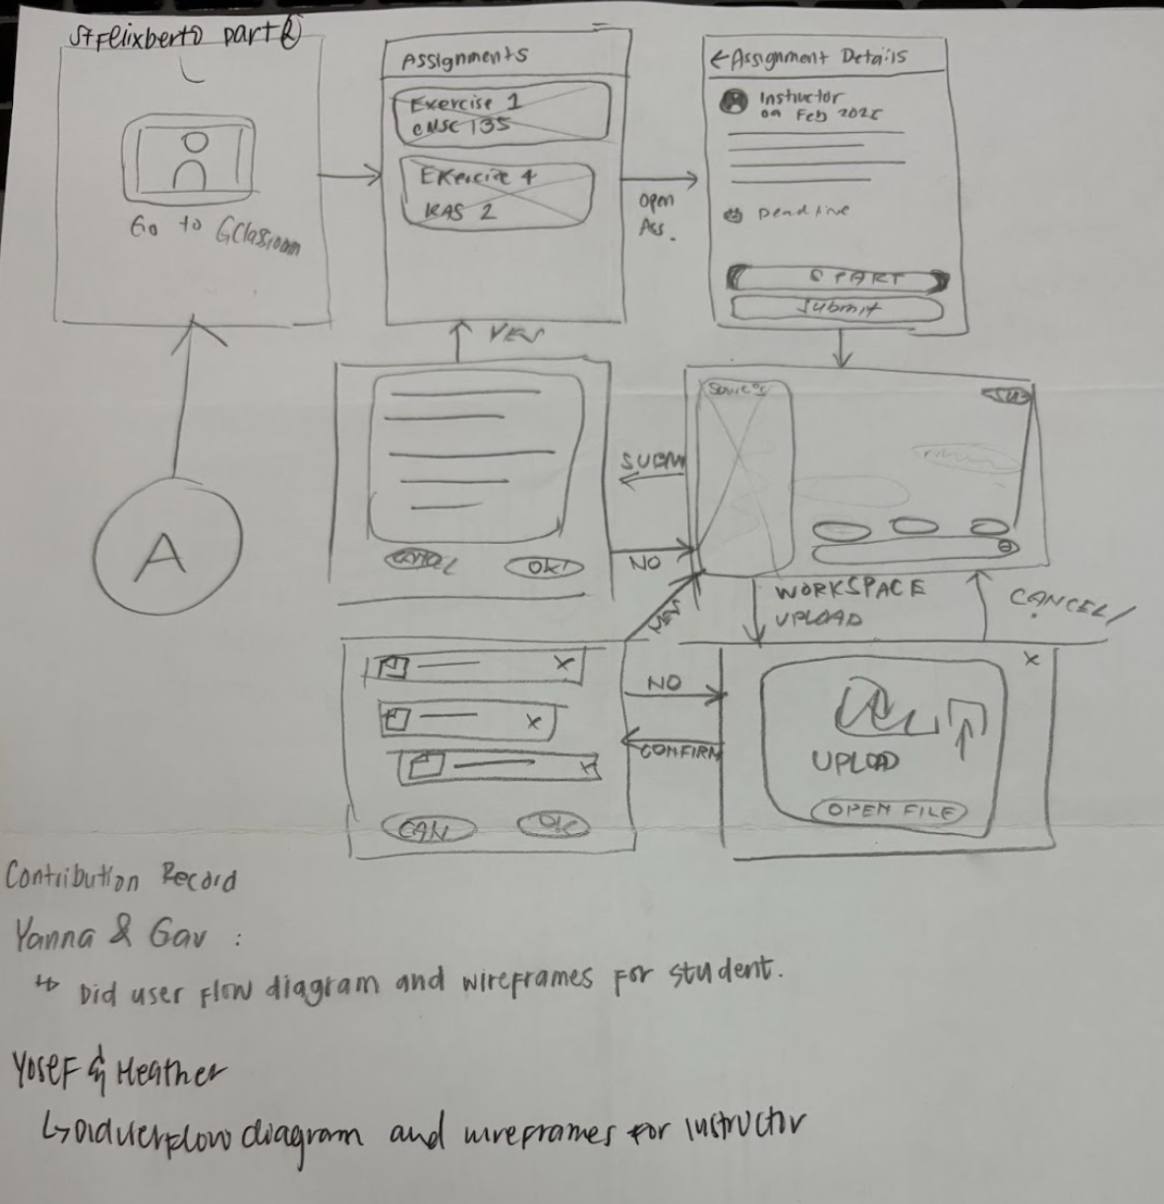 STFelixberto part 2
Go to GClassroom
Assignments
Exercise 1
CMSC 135
Exercise 4
KAS 2
Open
Ass.
←Assignment Details
Instructor
on Feb 2025
Deadline
START
Submit
A
YES
CANCEL
OK!
SUBM
NO
WORKSPACE
UPLOAD
CANCEL/
YES
X
X
CAN
OK
NO
CONFIRM
X
UPLOAD
OPEN FILE
Contribution Record
Yanna & Gav :
↳ Did user flow diagram and wireframes for student.
Yosef & Heather
↳ Did userflow diagram and wireframes for instructor